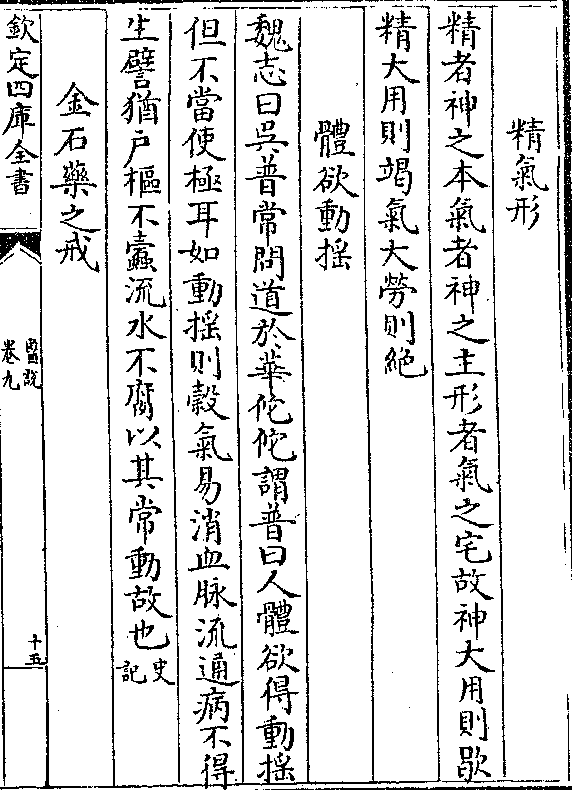 精氣形
精者神之本氣者神之主形者氣之宅故神大用則歇
精大用則竭氣大勞則絶
體欲動揺
魏志曰吳普常問道於華佗佗謂普曰人體欲得動揺
但不當使極耳如動揺則穀氣易消血脉流通病不得
生譬猶户樞不蠧流水不腐以其常動故也史記
金石藥之戒
欽定四庫全書
醫説
卷九
十五